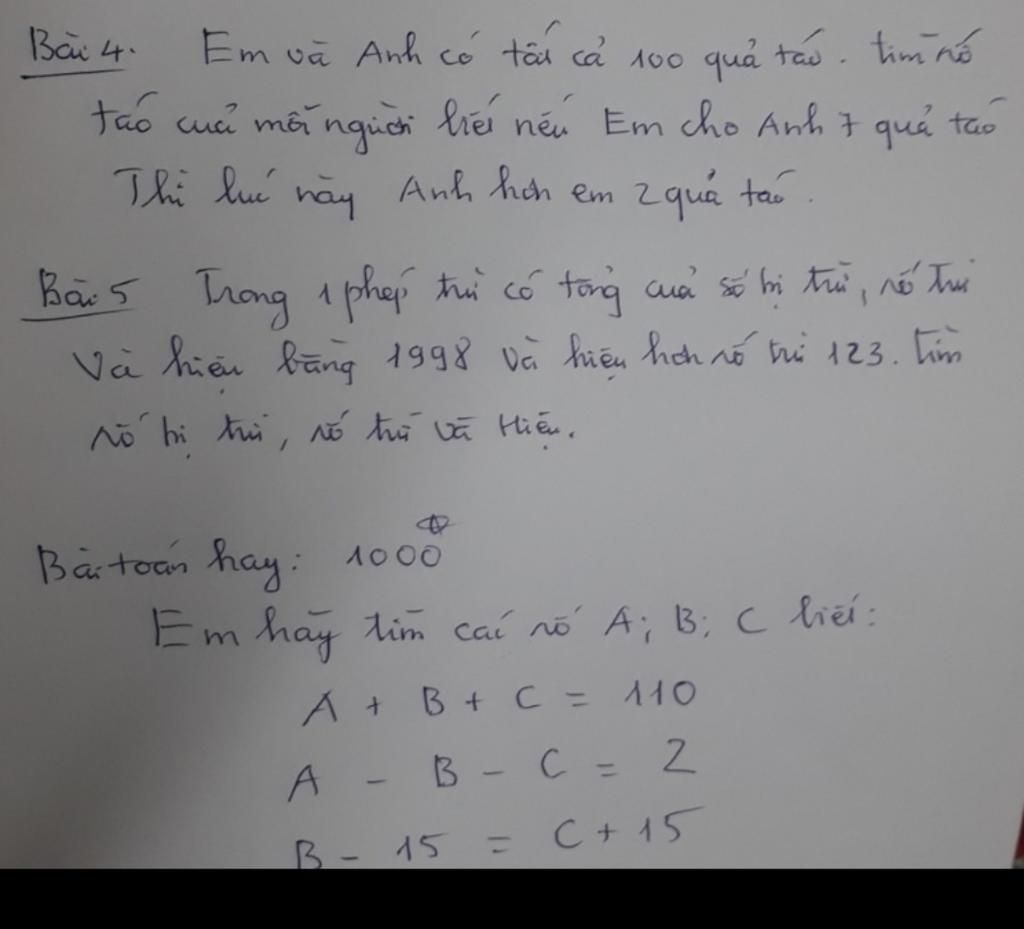 Bài 4. Em và Anh có tất cả 100 quả táo. tìm số
táo của mỗi người biết nếu Em cho Anh 7 quả táo
Thì lúc này Anh hơn em 2 quả táo.
Bài 5 Trong 1 phép trừ có tổng của số bị trừ, số trừ
Và hiệu bằng 1998 và hiệu hơn số trừ 123. tìm
số bị trừ, số trừ và Hiệu.
Bài toán hay: 1000
Em hãy tìm các số A; B; C biết:
A + B + C = 110
A - B - C = 2
B - 15 = C + 15